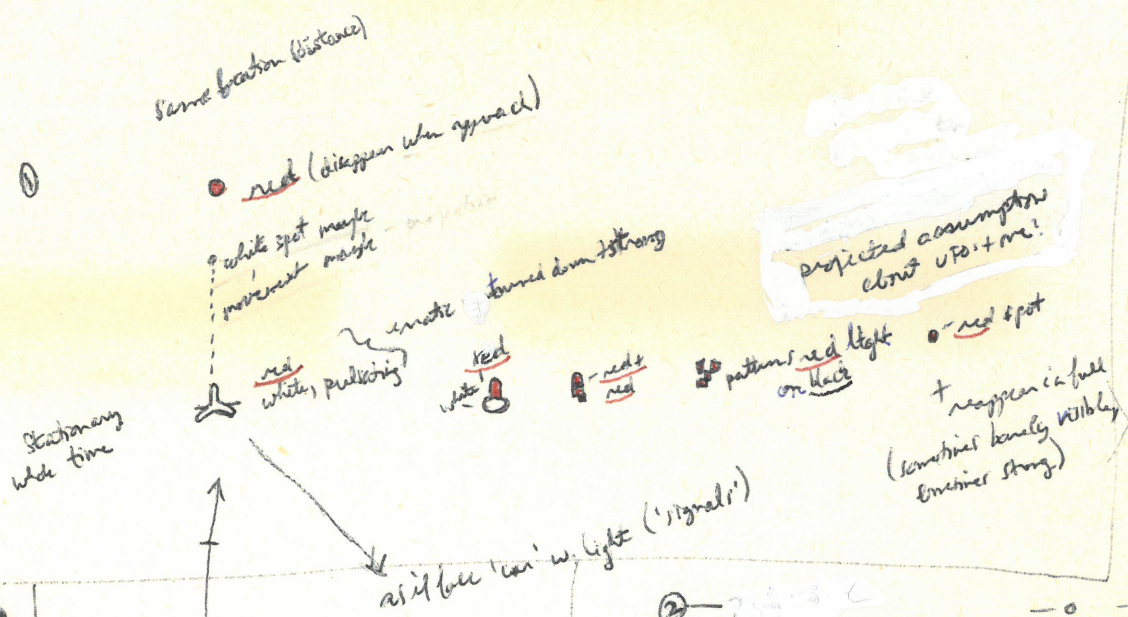 same location (distance)
①
red (disappear when approach)
white spot maybe
movement maybe
erratic turned down + strong
projected assumption
about UFO: + me?
red
white, pulsating
red
white
red +
red
patterns red light
on black
red spot
+ reappear in full
(sometimes barely visible,
sometimes strong)
Stationary
whole time
as if full 'con' w. light ('signals')
②